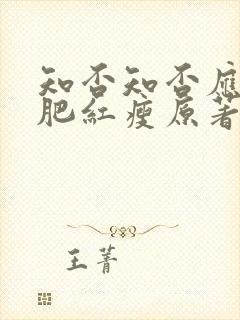 知否知否應
肥紅瘦原著
王菁